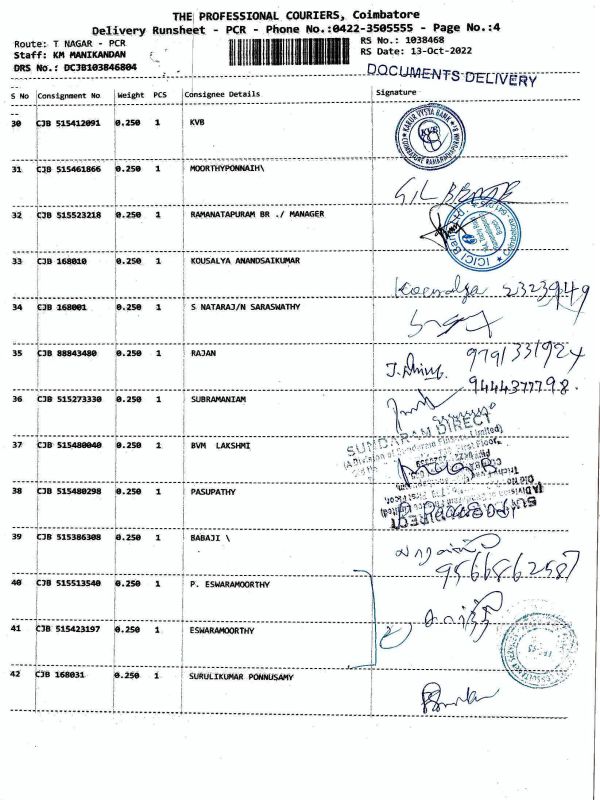 THE PROFESSIONAL COURIERS, Coimbatore
Delivery Runsheet - PCR - Phone No.:0422-3505555 - Page No.:4
Route: T NAGAR - PCR
RS No.: 1038468
Staff: KM MANIKANDAN
RS Date: 13-Oct-2022
DRS No.: DCJB103846804
DOCUMENTS DELIVERY
S No Consignment No Weight PCS Consignee Details Signature
30 CJB 515412091 0.250 1 KVB
KARUR VYSYA BANK
KVB
31 CJB 515461866 0.250 1 MOORTHYPONNAIH\
32 CJB 515523218 0.250 1 RAMANATAPURAM BR ./ MANAGER
ICICI Bank
33 CJB 168010 0.250 1 KOUSALYA ANANDSAIKUMAR
34 CJB 168001 0.250 1 S NATARAJ/N SARASWATHY
35 CJB 88843480 0.250 1 RAJAN
9791331924
36 CJB 515273330 0.250 1 SUBRAMANIAM
9444377798.
SUNDARAM DIRECT
(A Division of Sundaram Finance Limited)
37 CJB 515480040 0.250 1 BVM LAKSHMI
38 CJB 515480298 0.250 1 PASUPATHY
39 CJB 515386308 0.250 1 BABAJI \
9566862587
40 CJB 515513540 0.250 1 P. ESWARAMOORTHY
41 CJB 515423197 0.250 1 ESWARAMOORTHY
2)
42 CJB 168031 0.250 1 SURULIKUMAR PONNUSAMY